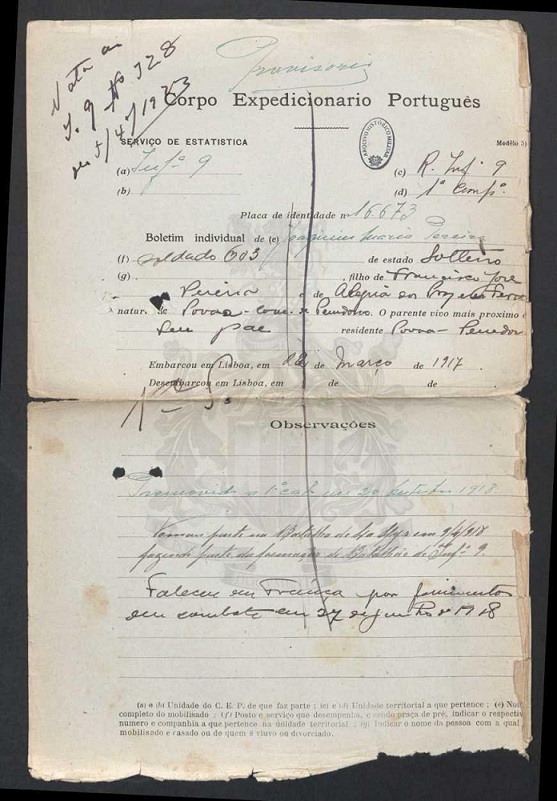 Provisorio
Nota a
J. 9 No 328
de 5/4/1923
Corpo Expedicionario Português
SERVIÇO DE ESTATISTICA
ARQUIVO HISTÓRICO MILITAR
Modêlo 5)
(a) Infª 9
(c) R. Infª 9
(b)
(d) 1ª Compª.
Placa de identidade nº 16.673
Boletim individual de (e) Joaquim Maria Pereira
(f) Soldado 603 de estado Solteiro
(g) , filho de Francisco José
Pereira e de Alegria
natural de Povoa - conc. de Penedono. O parente vivo mais proximo é
Seu pae residente Povoa - Penedon
Embarcou em Lisboa, em 22 de Março de 1917.
Desembarcou em Lisboa, em de de
Observações
Promovido a 1º cab em 20 1918
Tomou parte na Batalha de La Lys em 9/4/918
fazendo parte da formação do Batalhão de Infª 9.
Faleceu em França por ferimentos
em combate em 27 de 1918
(a) e (b) Unidade do C. E. P. de que faz parte; (c) e (d) Unidade territorial a que pertence; (e) No
completo do mobilisado; (f) Posto e serviço que desempenha, e sendo praça de pré, indicar o respectiv
numero e companhia a que pertence na unidade territorial; (g) Indicar o nome da pessoa com a qual
mobilisado é casado ou de quem é viuvo ou divorciado.